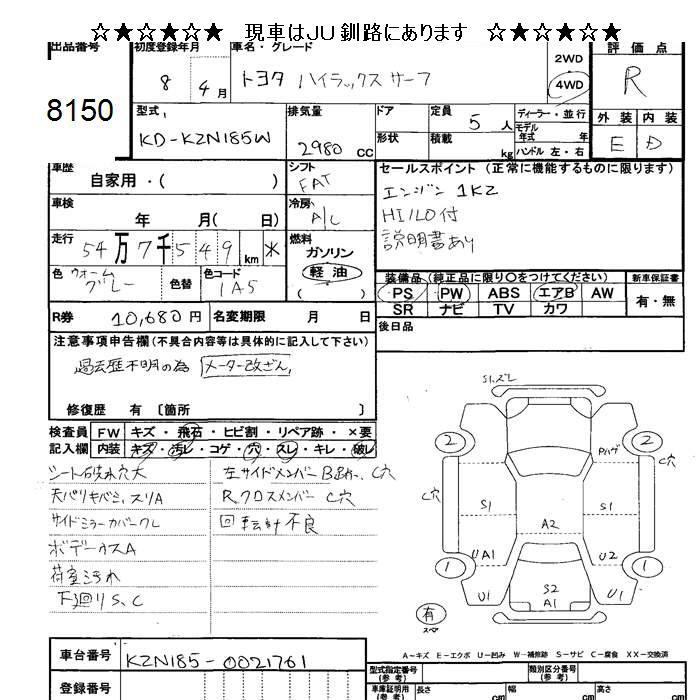 ☆★☆★☆★ 現車はJU釧路にあります ☆★☆★☆★
出品番号 初度登録年月 車名・グレード 2WD 評価点
8150 8 4月 トヨタ ハイラックスサーフ 4WD R
型式 排気量 ドア 定員 5人 ディーラー・並行 外装 内装
KD-KZN185W 2980cc 形状 積載 kg モデル年式 年式 ハンドル 左・右 E D
車歴 シフト セールスポイント (正常に機能するものに限ります)
自家用・( ) FAT エンジン 1KZ
車検 冷房 HI/LO付
年 月( 日) A/C 説明書あり
走行 燃料
54万7千549km ※ ガソリン
色 ウォームグレー 色替 色コード 1A5 軽油 ( )
装備品 (純正品に限り○をつけてください) 新車保証書
PS PW ABS エアB AW 有・無
SR ナビ TV カワ
R券 10,680円 名変期限 月 日 後日品
注意事項申告欄 (不具合内容等は具体的に記入して下さい)
過去歴不明の為 メーター改ざん
修復歴 有 〔箇所 〕
検査員 FW キズ・飛石・ヒビ割・リペア跡・×要
記入欄 内装 キズ・汚レ・コゲ・穴・スレ・キレ・破レ
シート破れ穴大 左サイドメンバー C穴
天バリキバミ、スリA R、クロスメンバー C穴
サイドミラーカバーワレ 回転計不良
ボデーウスA
荷室汚れ
下廻りS、C
S1、ズレ
2 2
Pハゲ
C穴 C穴
S1 S1
A2
UA1 U2
1 1
U1 S2 U1
A1
有
スペア
A~キズ E~エクボ U~凹み W~補修跡 S~サビ C~腐食 XX~交換済
車台番号 KZN185-0021761
型式指定番号 (参考) 類別区分番号 (参考)
登録番号 車庫証明用 (参考) 長さ cm 幅 cm 高さ cm